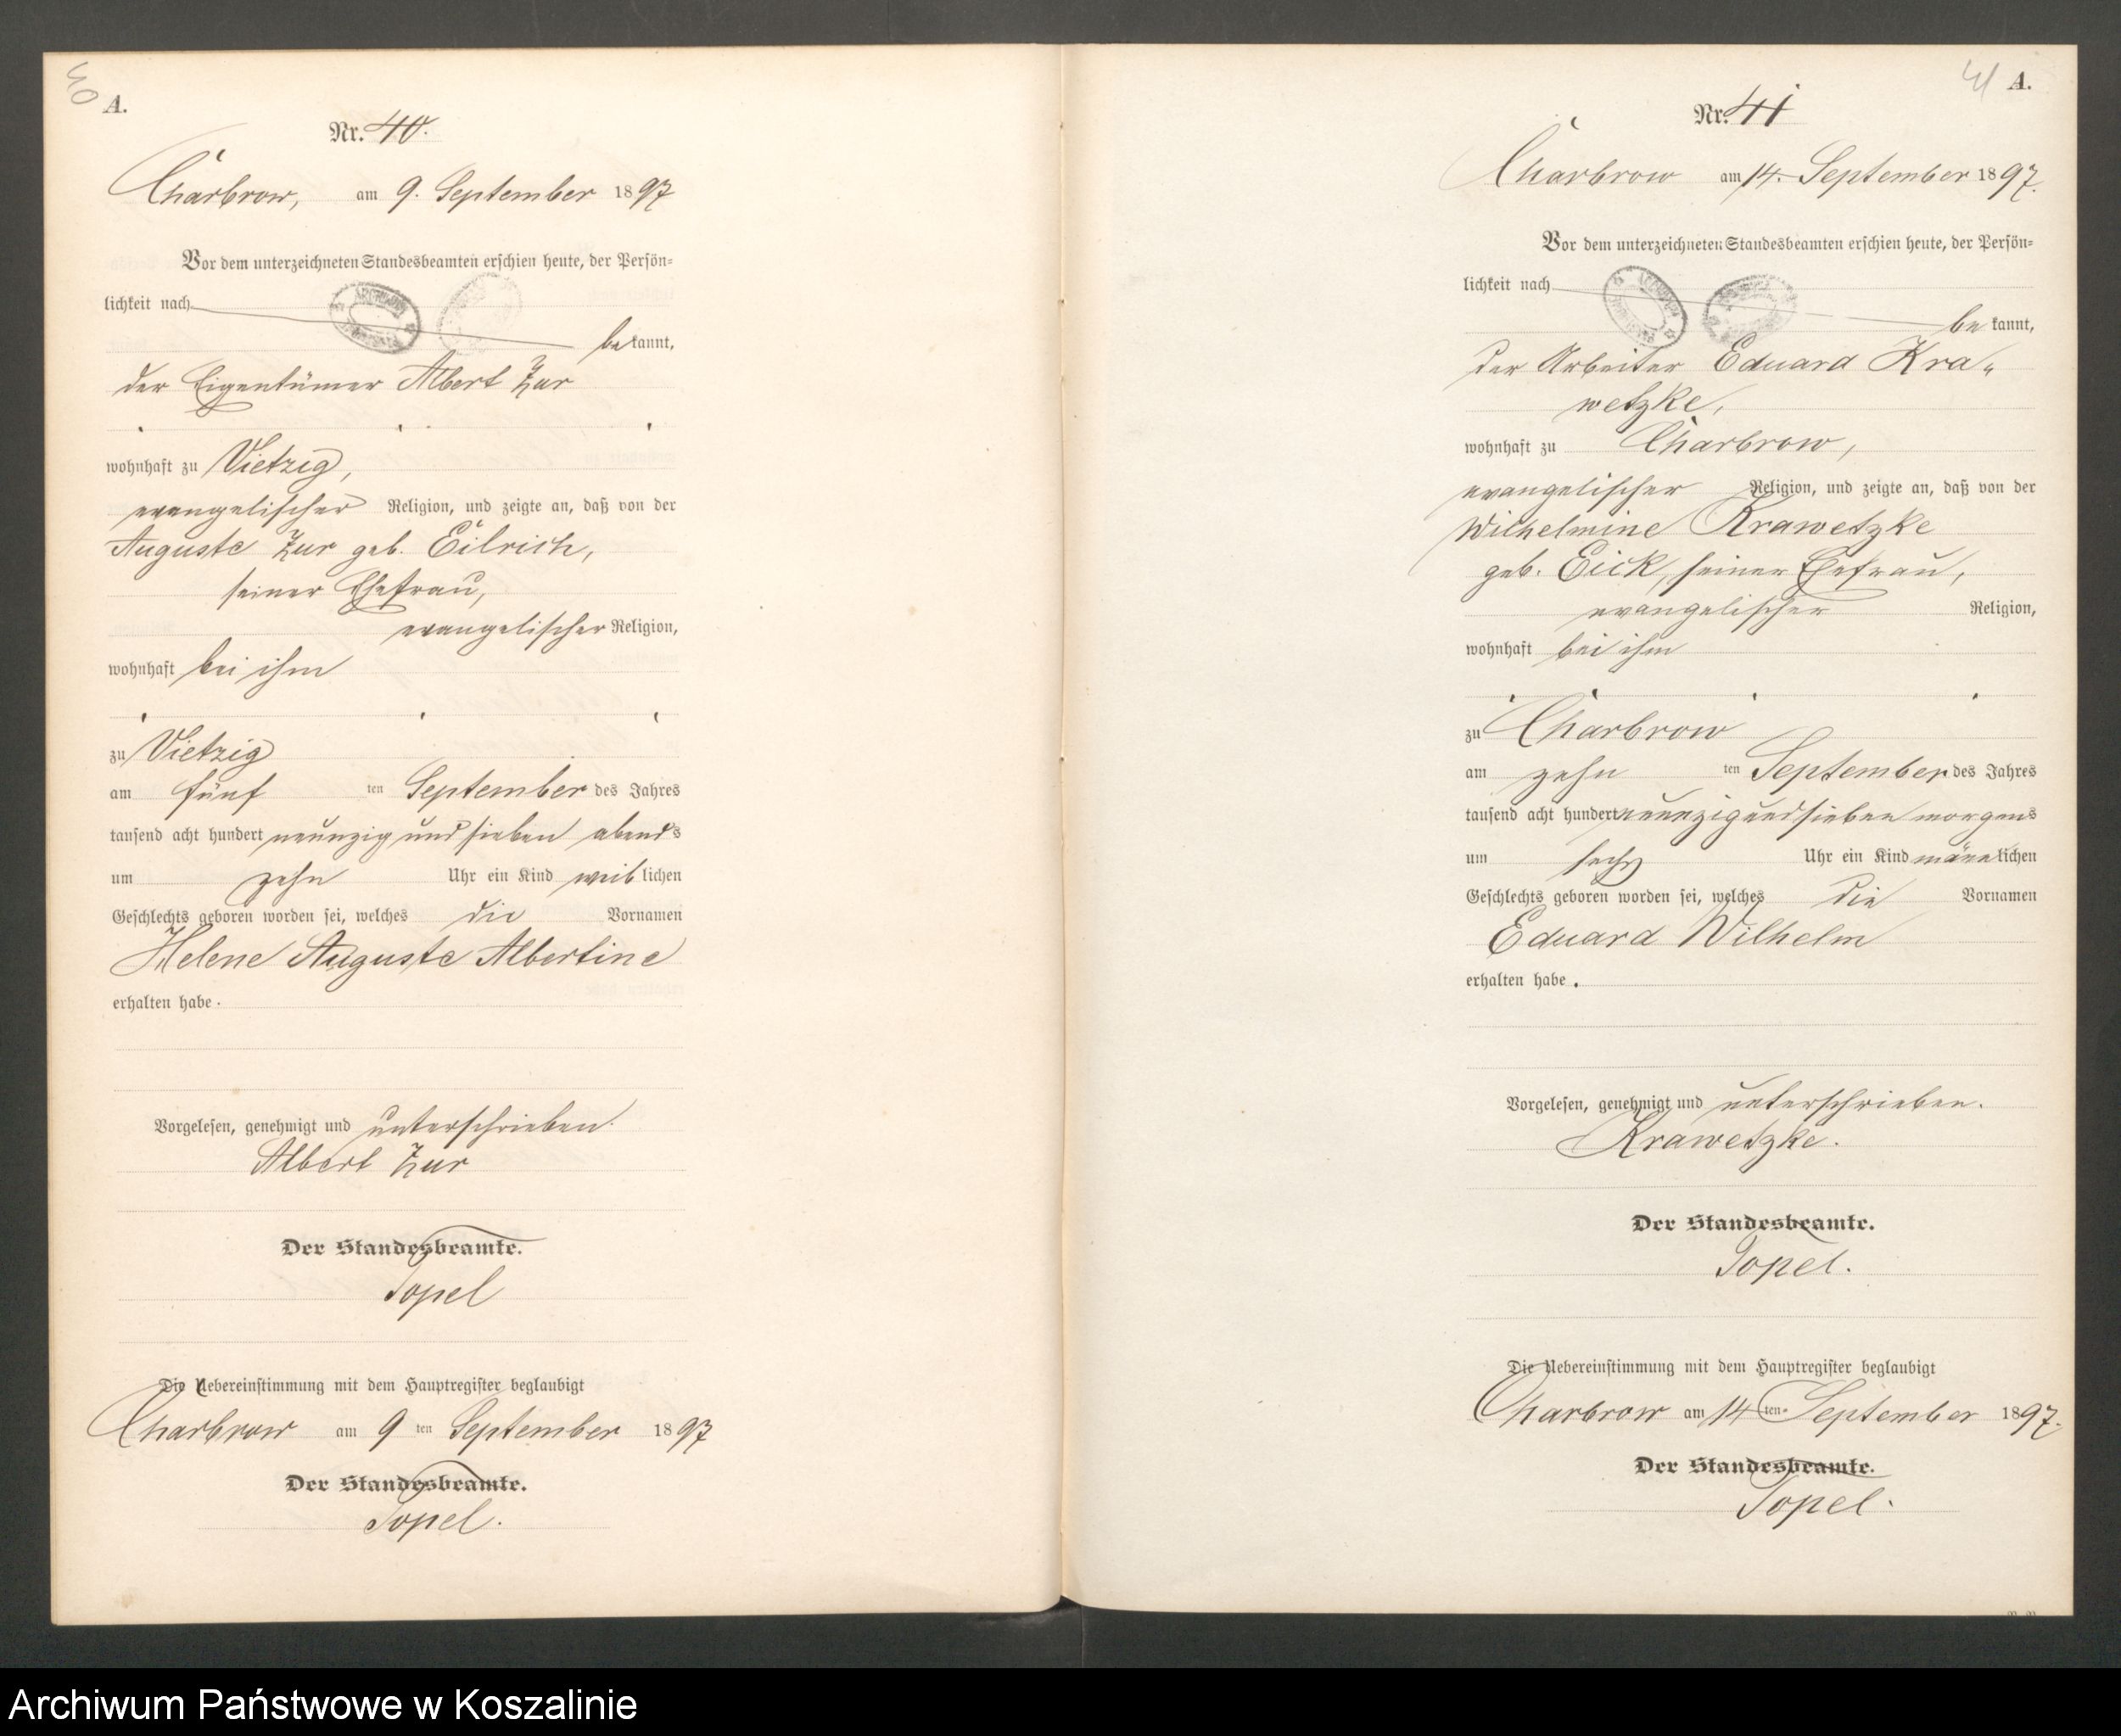 40
A.
Nr. 40.
Charbrow, am 9. September 1897
Vor dem unterzeichneten Standesbeamten erschien heute, der Persön-
lichkeit nach
bekannt,
der Eigentümer Albert Zur
wohnhaft zu Vietzig,
evangelischer Religion, und zeigte an, daß von der
Auguste Zur geb. Eilrich,
seiner Ehefrau,
evangelischer Religion,
wohnhaft bei ihm
zu Vietzig
am fünf ten September des Jahres
tausend acht hundert neunzig und sieben abends
um zehn Uhr ein Kind weiblichen
Geschlechts geboren worden sei, welches die Vornamen
Helene Auguste Albertine
erhalten habe.
Vorgelesen, genehmigt und unterschrieben.
Albert Zur
Der Standesbeamte.
Topel
Die Uebereinstimmung mit dem Hauptregister beglaubigt
Charbrow am 9 ten September 1897
Der Standesbeamte.
Topel.
41 A.
Nr. 41
Charbrow am 14. September 1897.
Vor dem unterzeichneten Standesbeamten erschien heute, der Persön-
lichkeit nach
bekannt,
der Arbeiter Eduard Kra„
wetzke,
wohnhaft zu Charbrow,
evangelischer Religion, und zeigte an, daß von der
Wilhelmine Krawetzke
geb. Eick, seiner Ehefrau,
evangelischer Religion,
wohnhaft bei ihm
zu Charbrow
am zehn ten September des Jahres
tausend acht hundert neunzig und sieben morgens
um sechs Uhr ein Kind männlichen
Geschlechts geboren worden sei, welches die Vornamen
Eduard Wilhelm
erhalten habe.
Vorgelesen, genehmigt und unterschrieben.
Krawetzke.
Der Standesbeamte.
Topel.
Die Uebereinstimmung mit dem Hauptregister beglaubigt
Charbrow am 14 ten September 1897.
Der Standesbeamte.
Topel.
Archiwum Państwowe w Koszalinie